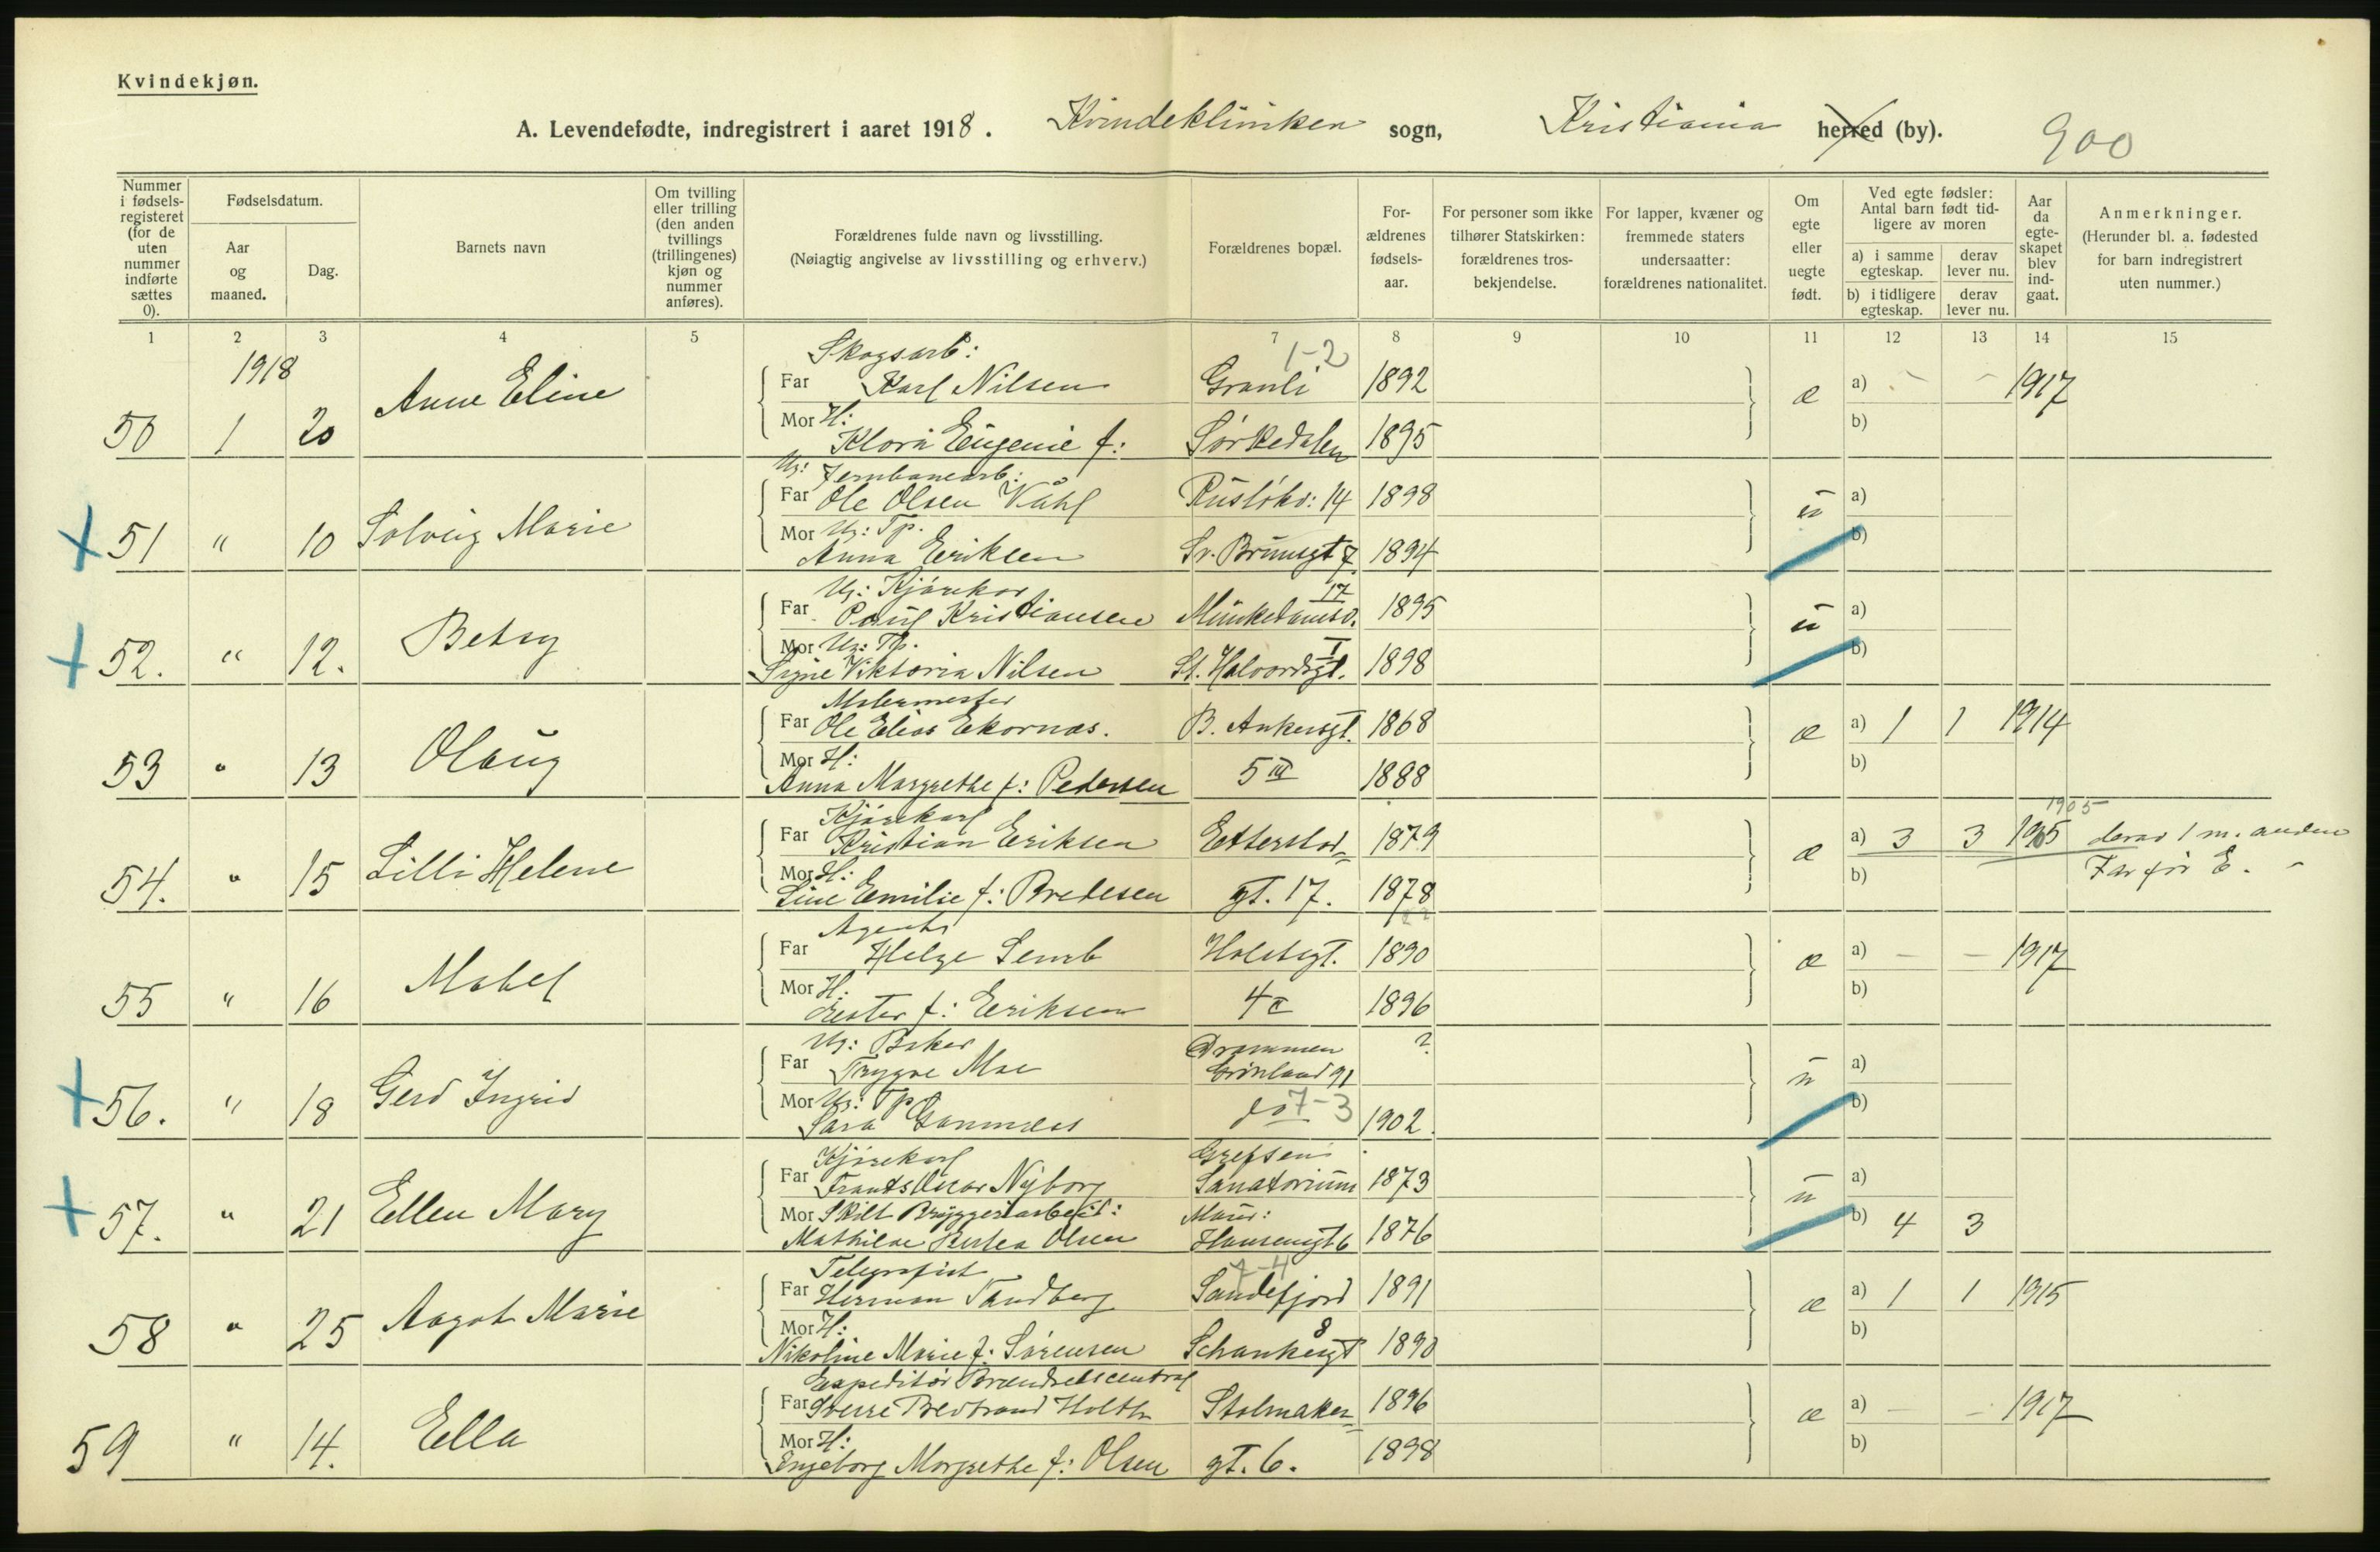 Kvindekjøn.
A. Levendefødte, indregistrert i aaret 1918. Kvindeklinikken sogn, Kristiania herred (by). 900
Nummer i fødselsregisteret (for de uten nummer indførte sættes 0).
Fødselsdatum.
Aar og maaned.
Dag.
Barnets navn
Om tvilling eller trilling (den anden tvillings (trillingenes) kjøn og nummer anføres).
Forældrenes fulde navn og livsstilling.
(Nøiagtig angivelse av livsstilling og erhverv.)
Forældrenes bopæl.
Forældrenes fødselsaar.
For personer som ikke tilhører Statskirken: forældrenes trosbekjendelse.
For lapper, kvæner og fremmede staters undersaatter: forældrenes nationalitet.
Om egte eller uegte født.
Ved egte fødsler: Antal barn født tidligere av moren
a) i samme egteskap. derav lever nu.
b) i tidligere egteskap. derav lever nu.
Aar da egteskapet blev indgaat.
Anmerkninger.
(Herunder bl. a. fødested for barn indregistrert uten nummer.)
1 2 3 4 5 7 8 9 10 11 12 13 14 15
1918 Skogsarb: 1-2
Anne Eline Far Karl Nilsen Granli 1892 æ a) - - 1917
50 1 20 Mor H: Klara Eugenie f: Sørkedalen 1895 b)
Ug: Jernbanearb:
Far Ole Olsen Våhl Ruseløkv: 14 1898 u a)
+ 51 " 10 Solveig Marie Mor Ug: Tp. Anna Eriksen Sv. Brunsgt 7 1894 b)
Ug: Kjørekar 17
Far Paul Kristiansen Munkedamsv. 1895 u a)
+ 52. " 12. Betsy Mor Ug: Tp. Signe Viktoria Nilsen St. Halvordsgt. I 1898 b)
Malermester
Far Ole Elias Ekornæs. B. Ankersgt. 1868 æ a) 1 1 1914
53 " 13 Olaug Mor H: Anna Margrethe f: Pedersen 5 III 1888 b)
Kjørekarl 1905
Far Kristian Eriksen Etterstad= 1879 æ a) 3 3 1905 derav 1 m. anden
54. " 15 Lilli Helene Mor H: Line Emilie f: Bredesen gt. 17. 1878 b) Far før E. -
Agent
Far Helge Semb Holstsgt. 1890 æ a) - - 1917
55 " 16 Mabel Mor H: Ester f: Eriksen 4 1896 b)
Ug: Baker Drammen ?
Far Trygve Moe Grønland 91 u a)
+ 56. " 18 Gerd Ingrid Mor Ug: Tp Sara do 7-3 1902 b)
Kjørekarl Grefsen
Far Frants Oscar Nyborg Sanatorium 1873 u a)
+ 57. " 21 Ellen Mary Mor Skilt Bryggeriarbeid: Maur:
Mathilde Olsen Hansensgt 6 1876 b) 4 3
Telegrafist 7-4
Far Herman Sandberg Sandefjord 1891 æ a) 1 1 1915
58 " 25 Aagot Marie Mor H: Nikoline Marie f. Sørensen Schankesgt 8 1890 b)
Expeditør Brændselscentral
Far Sverre Bertrand Holth Stolmaker= 1896 æ a) - - 1917
59 " 14. Ella Mor H: Engeborg Margrethe f: Olsen gt. 6. 1898 b)